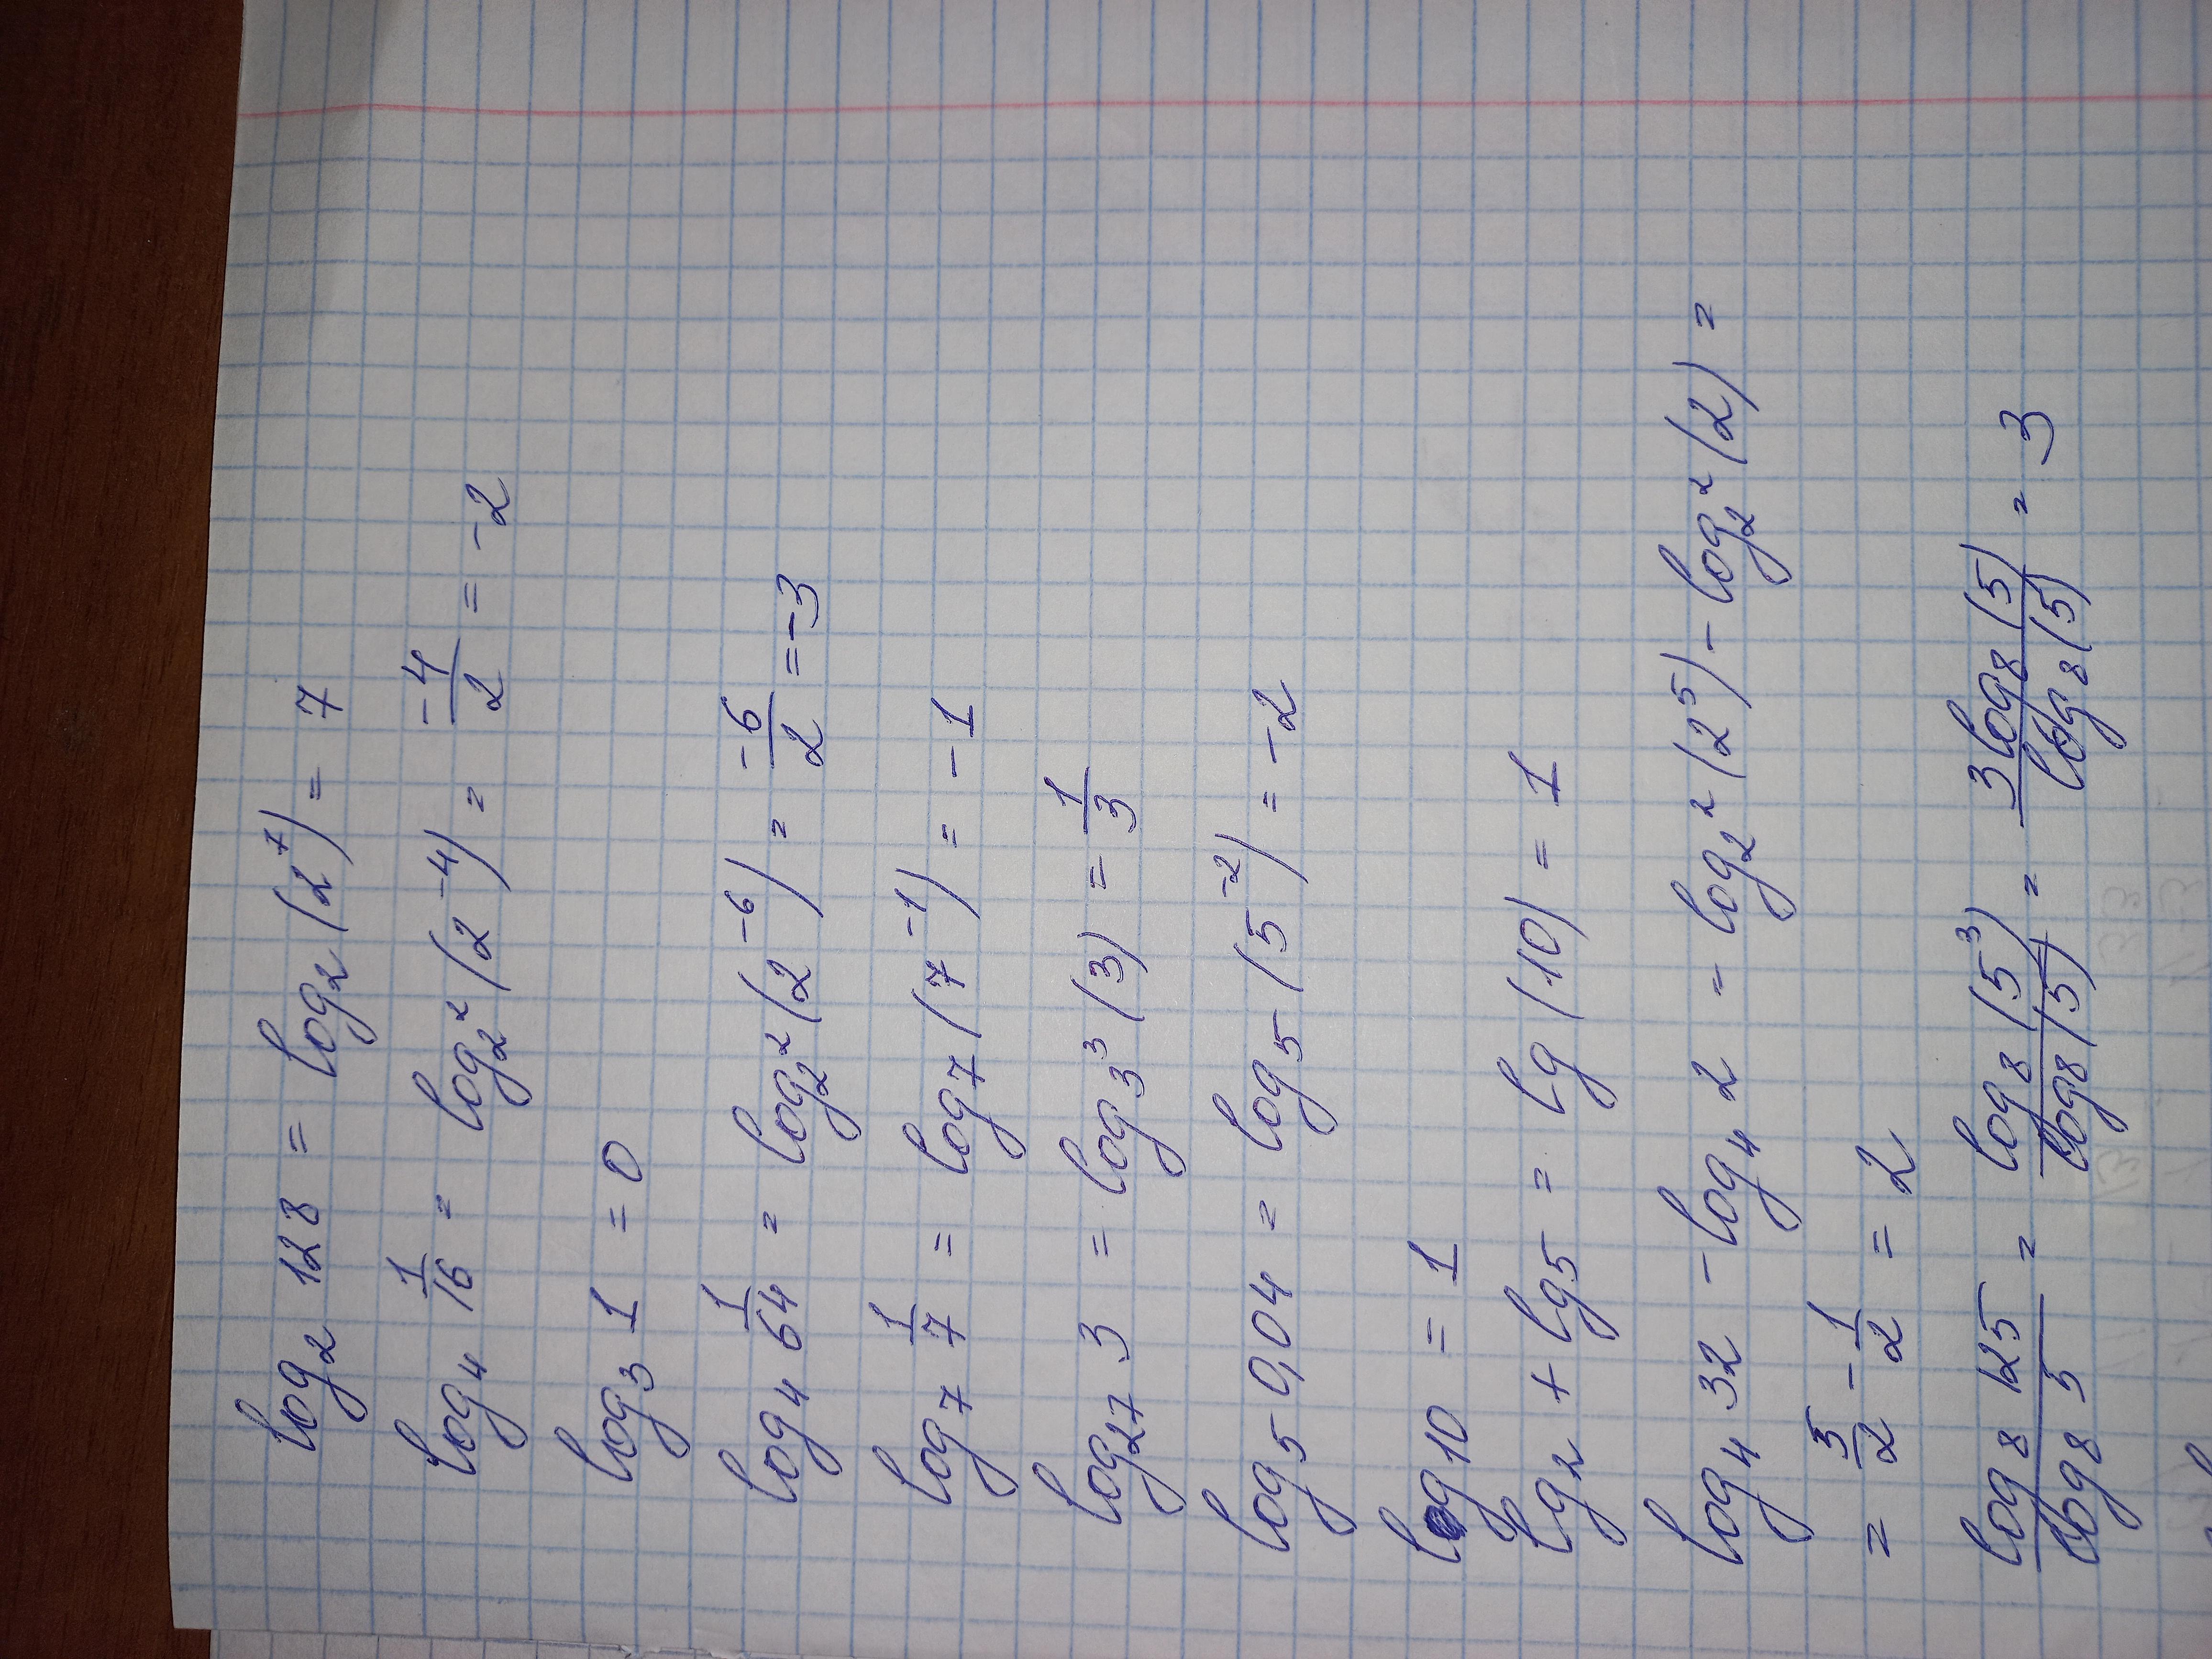 log₂ 128 = log₂(2⁷) = 7
log₄ 1/16 = log₂²(2⁻⁴) = -4/2 = -2
log₃ 1 = 0
log₄ 1/64 = log₂²(2⁻⁶) = -6/2 = -3
log₇ 1/7 = log₇(7⁻¹) = -1
log₂₇ 3 = log₃³(3) = 1/3
log₅ 0,04 = log₅(5⁻²) = -2
lg 10 = 1
lg 2 + lg 5 = lg(10) = 1
log₄ 32 - log₄ 2 = log₂²(2⁵) - log₂²(2) =
= 5/2 - 1/2 = 2
log₈ 125 / log₈ 5 = log₈(5³) / log₈(5) = 3log₈(5) / log₈(5) = 3